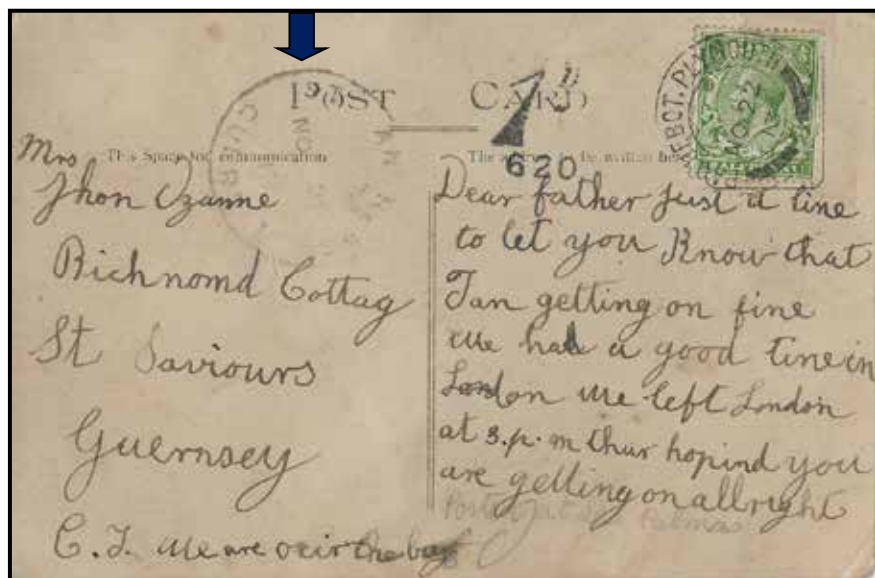 POST CARD
This Space for communication
The address to be written here
1D
620
PLYMOUTH
NO 22
Mrs
Jhon Ozanne
Richnomd Cottag
St Saviours
Guernsey
C.I. We are the bay
Dear father just a line
to let you Know that
I an getting on fine
We had a good time in
London we left London
at 3.p.m thur hopind you
are getting on allright
Posted at Palmas